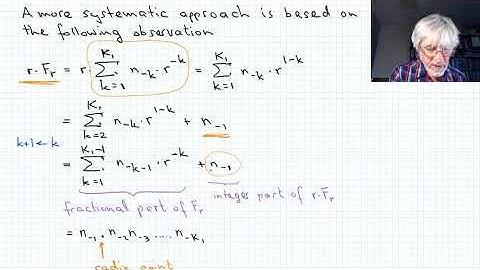 A more systematic approach is based on
the following observation
r·F_r = r·∑_{k=1}^{K_1} n_{-k}·r^{-k} = ∑_{k=1}^{K_1} n_{-k}·r^{1-k}
= ∑_{k=2}^{K_1} n_{-k}·r^{1-k} + n_{-1}
k+1←k
= ∑_{k=1}^{K_1-1} n_{-k-1}·r^{-k} + n_{-1}
fractional part of F_r integer part of r·F_r
= n_{-1} . n_{-2} n_{-3} .... n_{-K_1}
↑
radix point